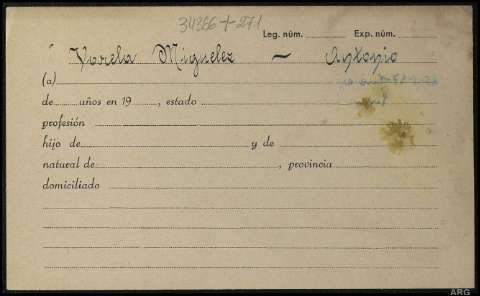 34366+271
Leg. núm. Exp. núm.
Varela Miguelez — Antonio
(a)
de años en 19 , estado
profesión
hijo de y de
natural de , provincia
domiciliado
ARG